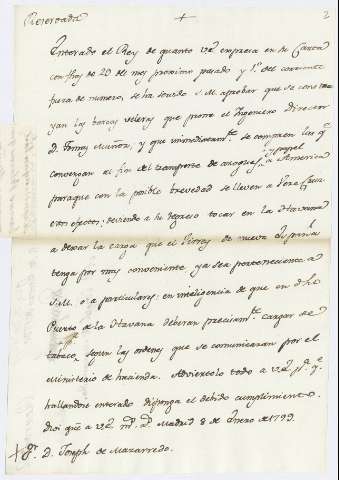 Reservada + 2
Enterado el Rey de quanto V.E. expresa en su Carta
con fha de 20 del mes proximo pasado y 1º del corriente
fuera de numero, se ha servido S.M. aprobar que se constru
yan los barcos veleros que piensa el Ingeniero Director
D. Tomas Muñoz, y que inmediatamte. se compren los qe.
convengan al fin del transporte de azogues, y papel a America
para que con la posible brevedad se lleven a Vera Cruz
estos efectos; deviendo a su regreso tocar en la Havana
a dexar la carga que el Virrey de nueva España
tenga por muy conveniente ya sea perteneciente a
S.M. ó a particulares en inteligencia de que en dho
Puerto de la Havana deberan precisamte. cargar de
tabaco, segun las ordenes que se comunicaran por el
Ministerio de hacienda. Adviertolo todo a V.E. pa. qe.
hallandose enterado disponga el debido cumplimiento.
Dios gue. a V.E. ms. as. Madrid 8 de Enero de 1799.
+ Sr. D. Joseph de Mazarredo.